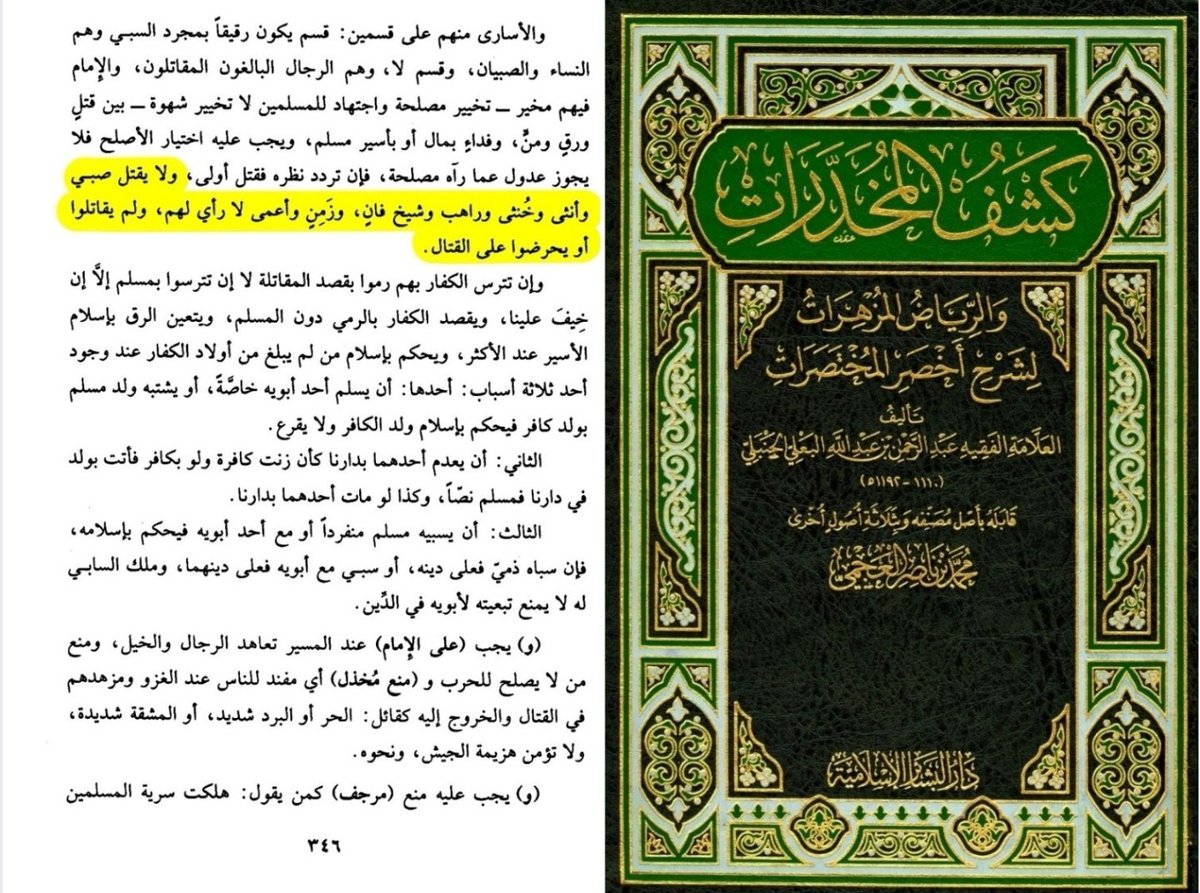 والأسارى منهم على قسمين: قسم يكون رقيقاً بمجرد السبي وهم
النساء والصبيان، وقسم لا، وهم الرجال البالغون المقاتلون، والإمام
فيهم مخير ــ تخيير مصلحة واجتهاد للمسلمين لا تخيير شهوة ــ بين قتلٍ
ورقٍ ومنٍّ، وفداءٍ بمال أو بأسير مسلم، ويجب عليه اختيار الأصلح فلا
يجوز عدول عما رآه مصلحة، فإن تردد نظره فقتل أولى، ولا يقتل صبي
وأنثى وخُنثى وراهب وشيخ فانٍ، وزَمِنٍ وأعمى لا رأي لهم، ولم يقاتلوا
أو يحرضوا على القتال.
وإن تترس الكفار بهم رموا بقصد المقاتلة لا إن تترسوا بمسلم إلاَّ إن
خِيفَ علينا، ويقصد الكفار بالرمي دون المسلم، ويتعين الرق بإسلام
الأسير عند الأكثر، ويحكم بإسلام من لم يبلغ من أولاد الكفار عند وجود
أحد ثلاثة أسباب: أحدها: أن يسلم أحد أبويه خاصَّةً، أو يشتبه ولد مسلم
بولد كافر فيحكم بإسلام ولد الكافر ولا يقرع.
الثاني: أن يعدم أحدهما بدارنا كأن زنت كافرة ولو بكافر فأتت بولد
في دارنا فمسلم نصّاً، وكذا لو مات أحدهما بدارنا.
الثالث: أن يسبيه مسلم منفرداً أو مع أحد أبويه فيحكم بإسلامه،
فإن سباه ذميّ فعلى دينه، أو سبي مع أبويه فعلى دينهما، وملك السابي
له لا يمنع تبعيته لأبويه في الدِّين.
(و) يجب (على الإمام) عند المسير تعاهد الرجال والخيل، ومنع
من لا يصلح للحرب و (منع مُخذل) أي مفند للناس عند الغزو ومزهدهم
في القتال والخروج إليه كقائل: الحر أو البرد شديد، أو المشقة شديدة،
ولا تؤمن هزيمة الجيش، ونحوه.
(و) يجب عليه منع (مرجف) كمن يقول: هلكت سرية المسلمين
٣٤٦
كَشْفُ المُخَدَّرَاتِ
وَالرِّيَاضُ المُزْهِرَاتُ
لِشَرْحِ أَخْصَرِ المُخْتَصَرَاتِ
تَأليفُ
العَلَّامَةِ الفَقِيهِ عَبْدِ الرَّحْمٰنِ بْنِ عَبْدِ اللهِ البَعْلِيِّ الحَنْبَلِيِّ
(١١١٠ - ١١٩٢هـ)
قَابَلَهُ بِأَصْلِ مُصَنِّفِهِ وَبِثَلَاثَةِ أُصُولٍ أُخْرَى
مُحَمَّدُ بْنُ نَاصِرٍ العَجْمِيُّ
دَارُ البَشَائِرِ الإِسْلَامِيَّة